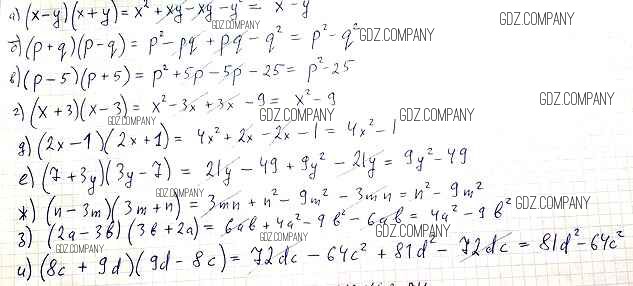 а) (x-y)(x+y) = x² + xy - xy - y² = x² - y²
GDZ.COMPANY
GDZ.COMPANY
б) (p+q)(p-q) = p² - pq + pq - q² = p² - q²
GDZ.COMPANY
в) (p-5)(p+5) = p² + 5p - 5p - 25 = p² - 25
г) (x+3)(x-3) = x² - 3x + 3x - 9 = x² - 9
GDZ.COMPANY
GDZ.COMPANY
GDZ.COMPANY
д) (2x-1)(2x+1) = 4x² + 2x - 2x - 1 = 4x² - 1
е) (7+3y)(3y-7) = 21y - 49 + 9y² - 21y = 9y² - 49
GDZ.COMPANY
ж) (n-3m)(3m+n) = 3mn + n² - 9m² - 3mn = n² - 9m²
GDZ.COMPANY
з) (2a-3b)(3b+2a) = 6ab + 4a² - 9b² - 6ab = 4a² - 9b²
GDZ.COMPANY
GDZ.COMPANY
и) (8c + 9d)(9d - 8c) = 72dc - 64c² + 81d² - 72dc = 81d² - 64c²